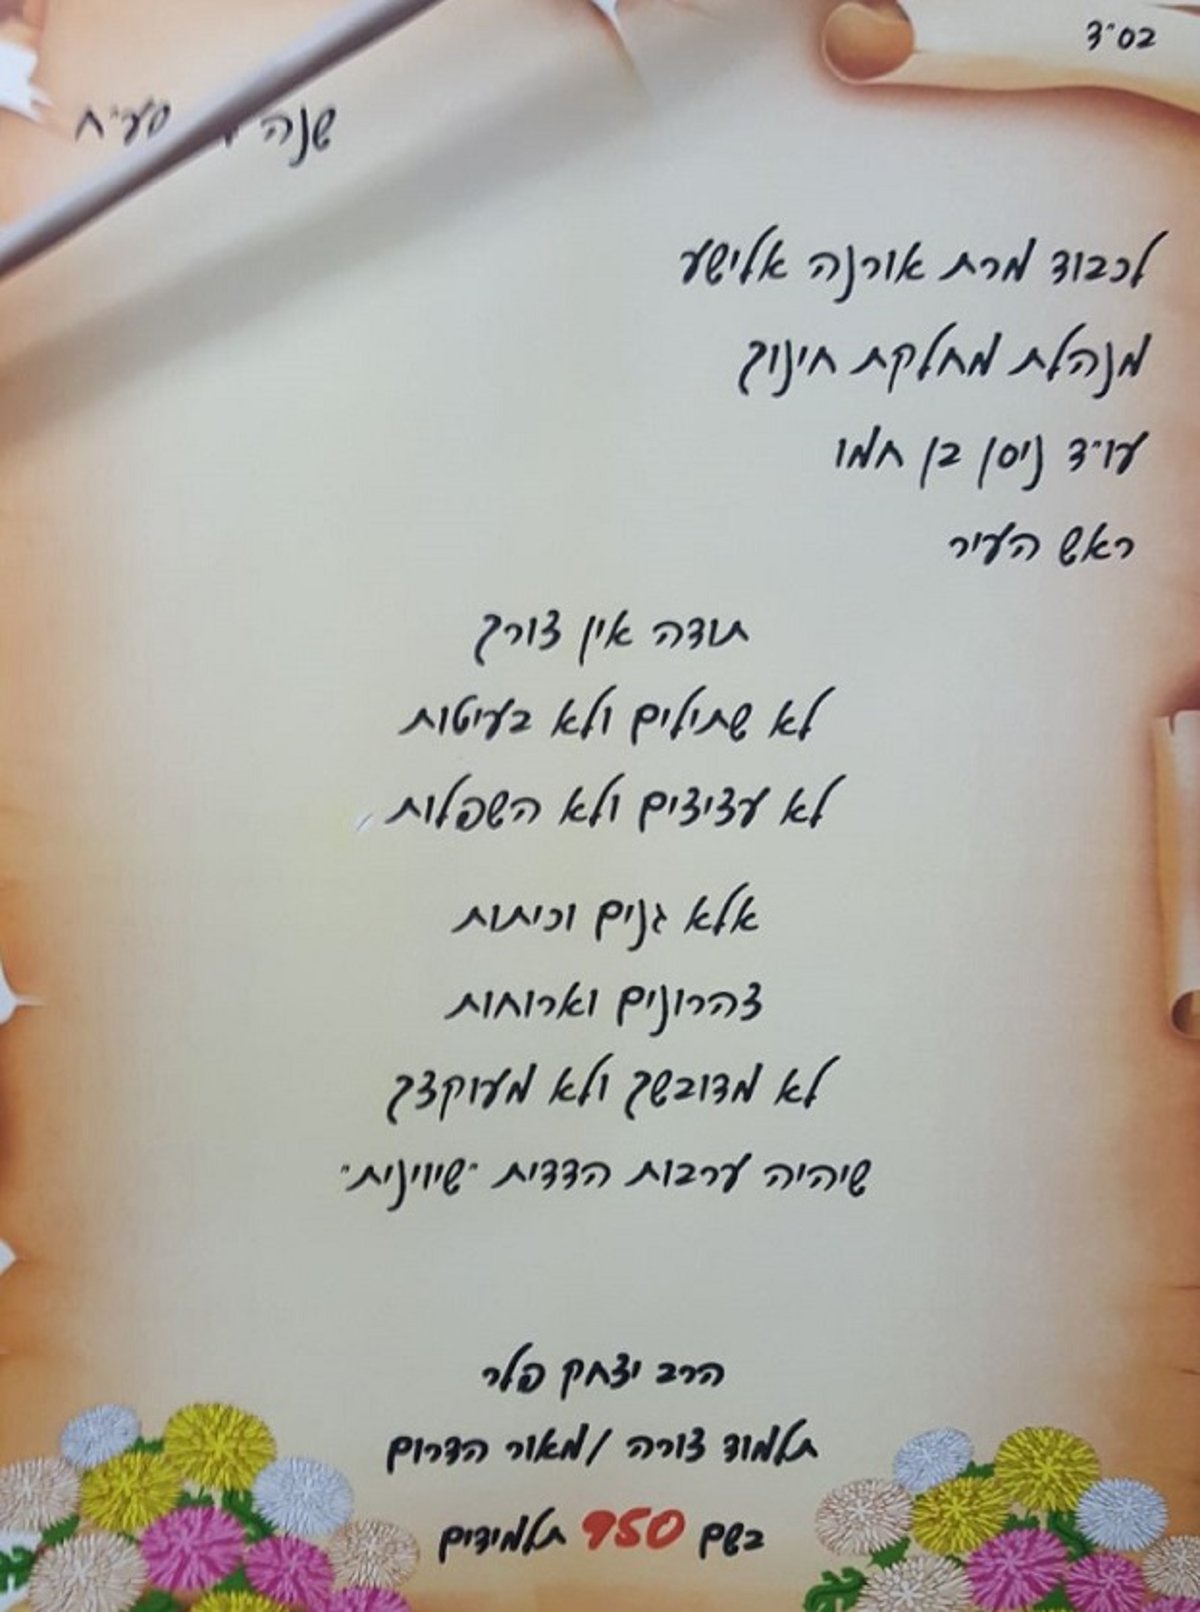 בס״ד
שנה סע״ח
לכבוד מרת אורנה אלישע
מנהלת מחלקת חינוך
עו״ד ניסן בן חמו
ראש העיר
תודה אין צורך
לא שתילים ולא בעיטות
לא עציצים ולא השפלות
אלא גנים וכיתות
צהרונים וארוחות
לא מדובשך ולא מעוקצך
שיהיה ערבות הדדית ״שיוינית״
הרב יצחק פלר
תלמוד צורה / מאור הדרום
בשם 950 תלמידים